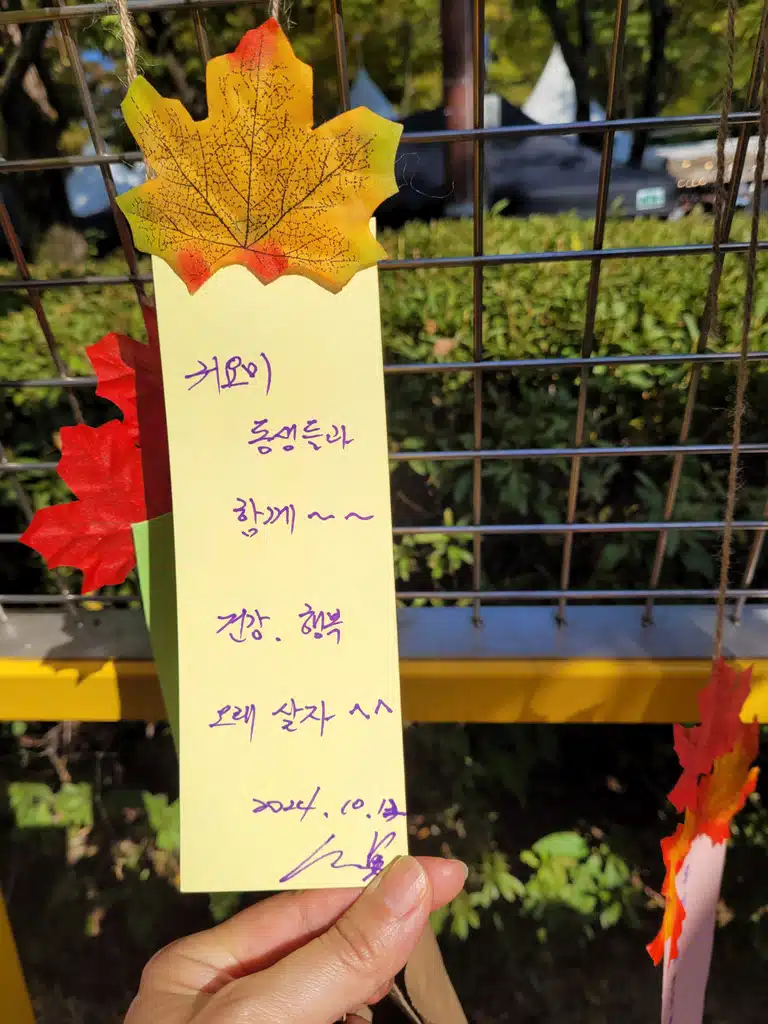 동생들과
함께~~
건강. 행복
오래 살자 ^^
2024. 10. 12